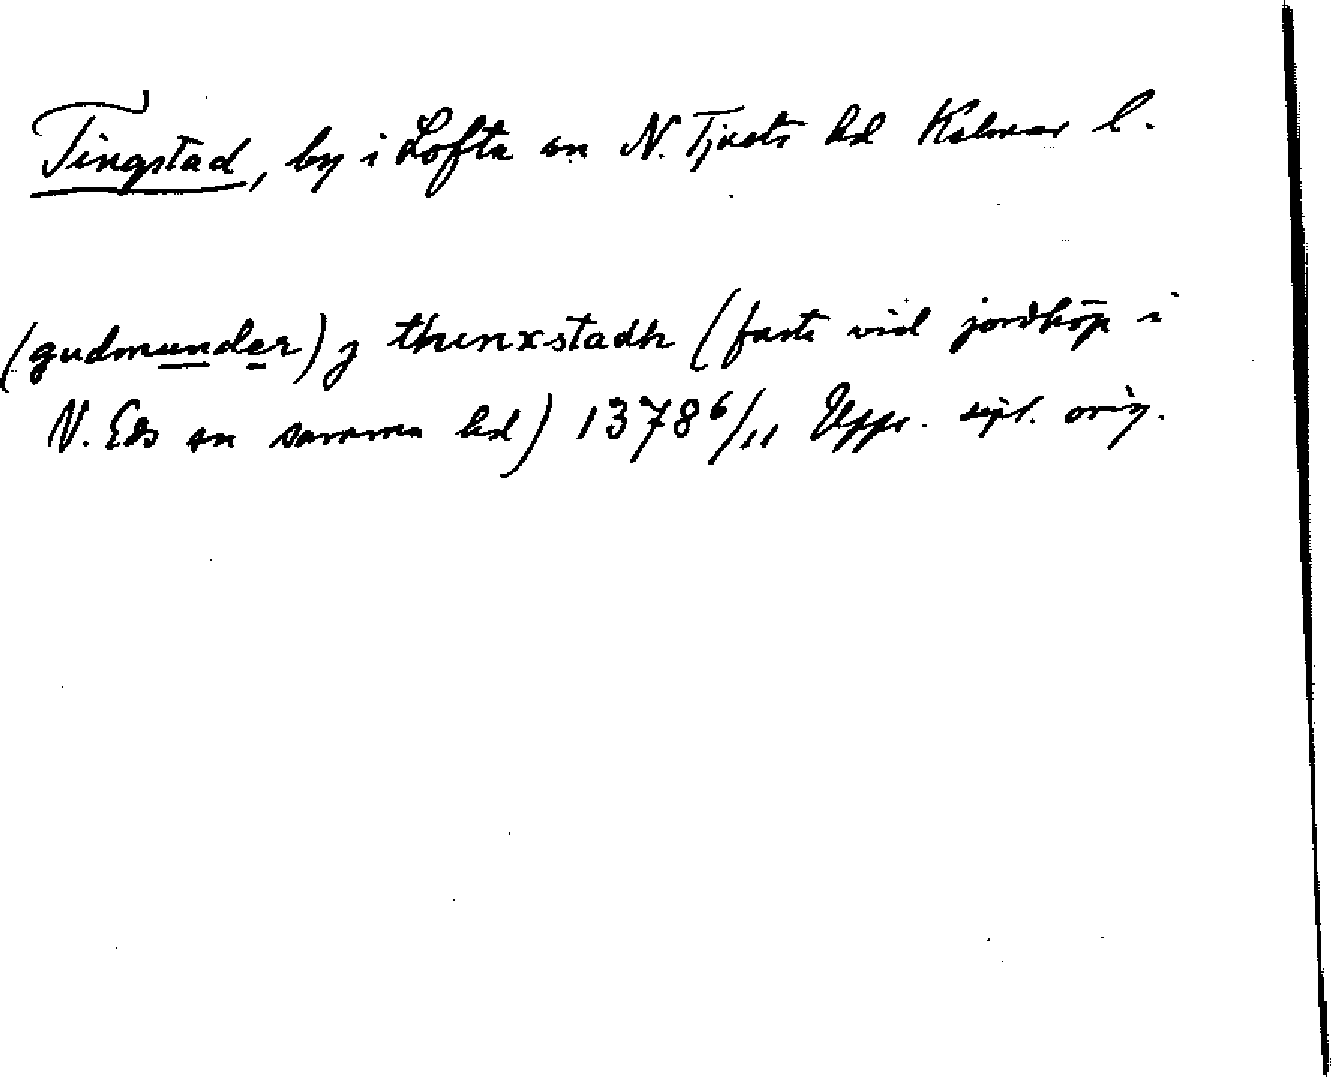 Tingstad, by i Lofta sn N. Tjusts hd Kalmar l.
(gudmunder) j thenxstadh (faste vid jordköp i
N. Eds sn samma hd) 1378 6/11 Upps. dipl. orig.